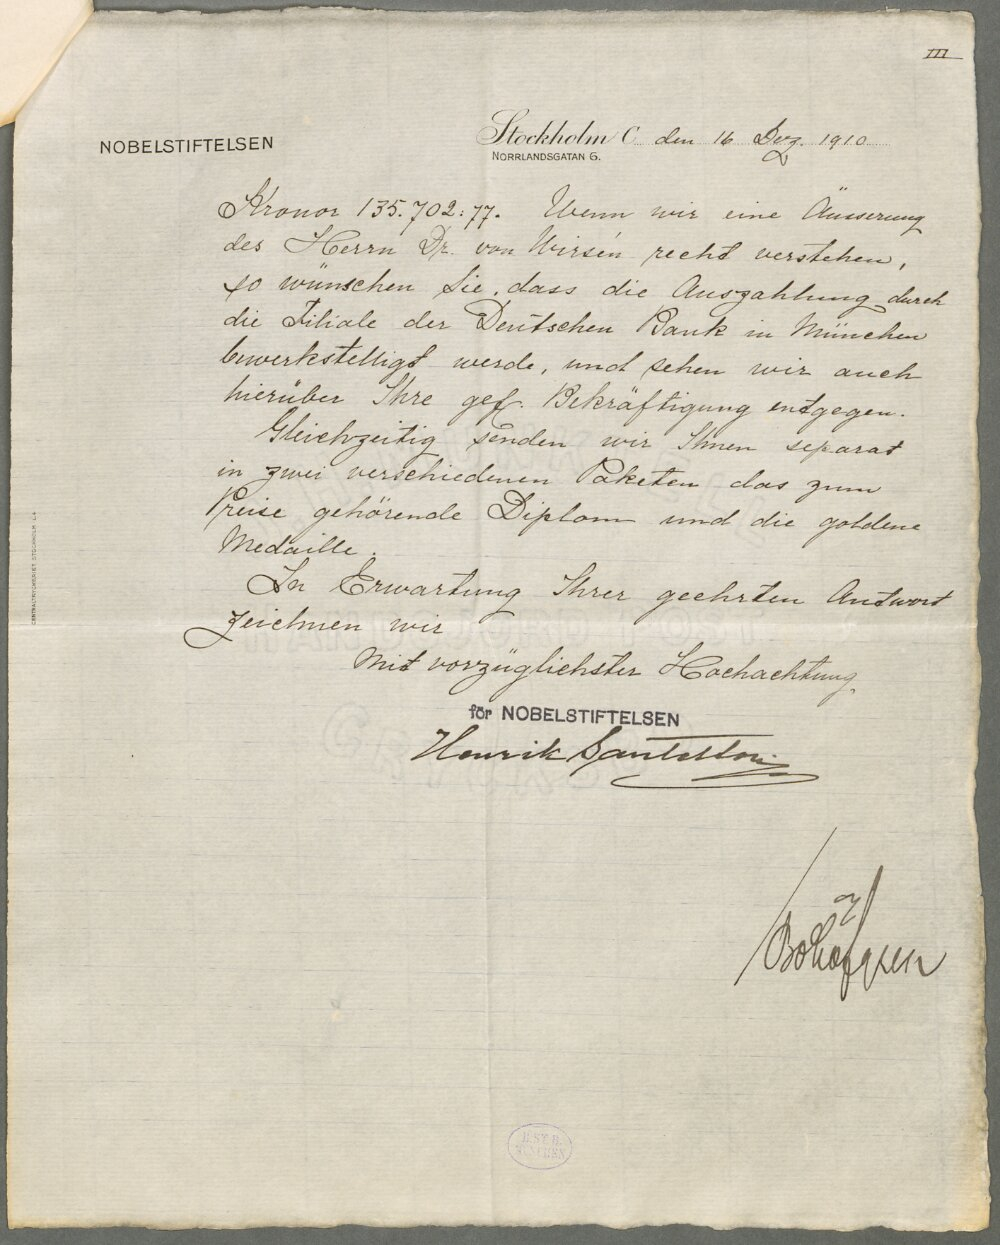 III
NOBELSTIFTELSEN
Stockholm C. den 16 Dez. 1910
NORRLANDSGATAN 6.
Kronor 135.702:77. Wenn wir eine Äusserung
des Herrn Dr. von Wirsén recht verstehen,
so wünschen Sie, dass die Auszahlung durch
die Filiale der Deutschen Bank in München
bewerkstelligt werde, und sehen wir auch
hierüber Ihre gef. Bekräftigung entgegen.
Gleichzeitig senden wir Ihnen separat
in zwei verschiedenen Paketen das zum
Preise gehörende Diplom und die goldene
Medaille.
In Erwartung Ihrer geehrten Antwort
zeichnen wir
Mit vorzüglichster Hochachtung,
för NOBELSTIFTELSEN
Henrik Santesson
CENTRALTRYCKERIET STOCKHOLM
B. ST. B.
MÜNCHEN